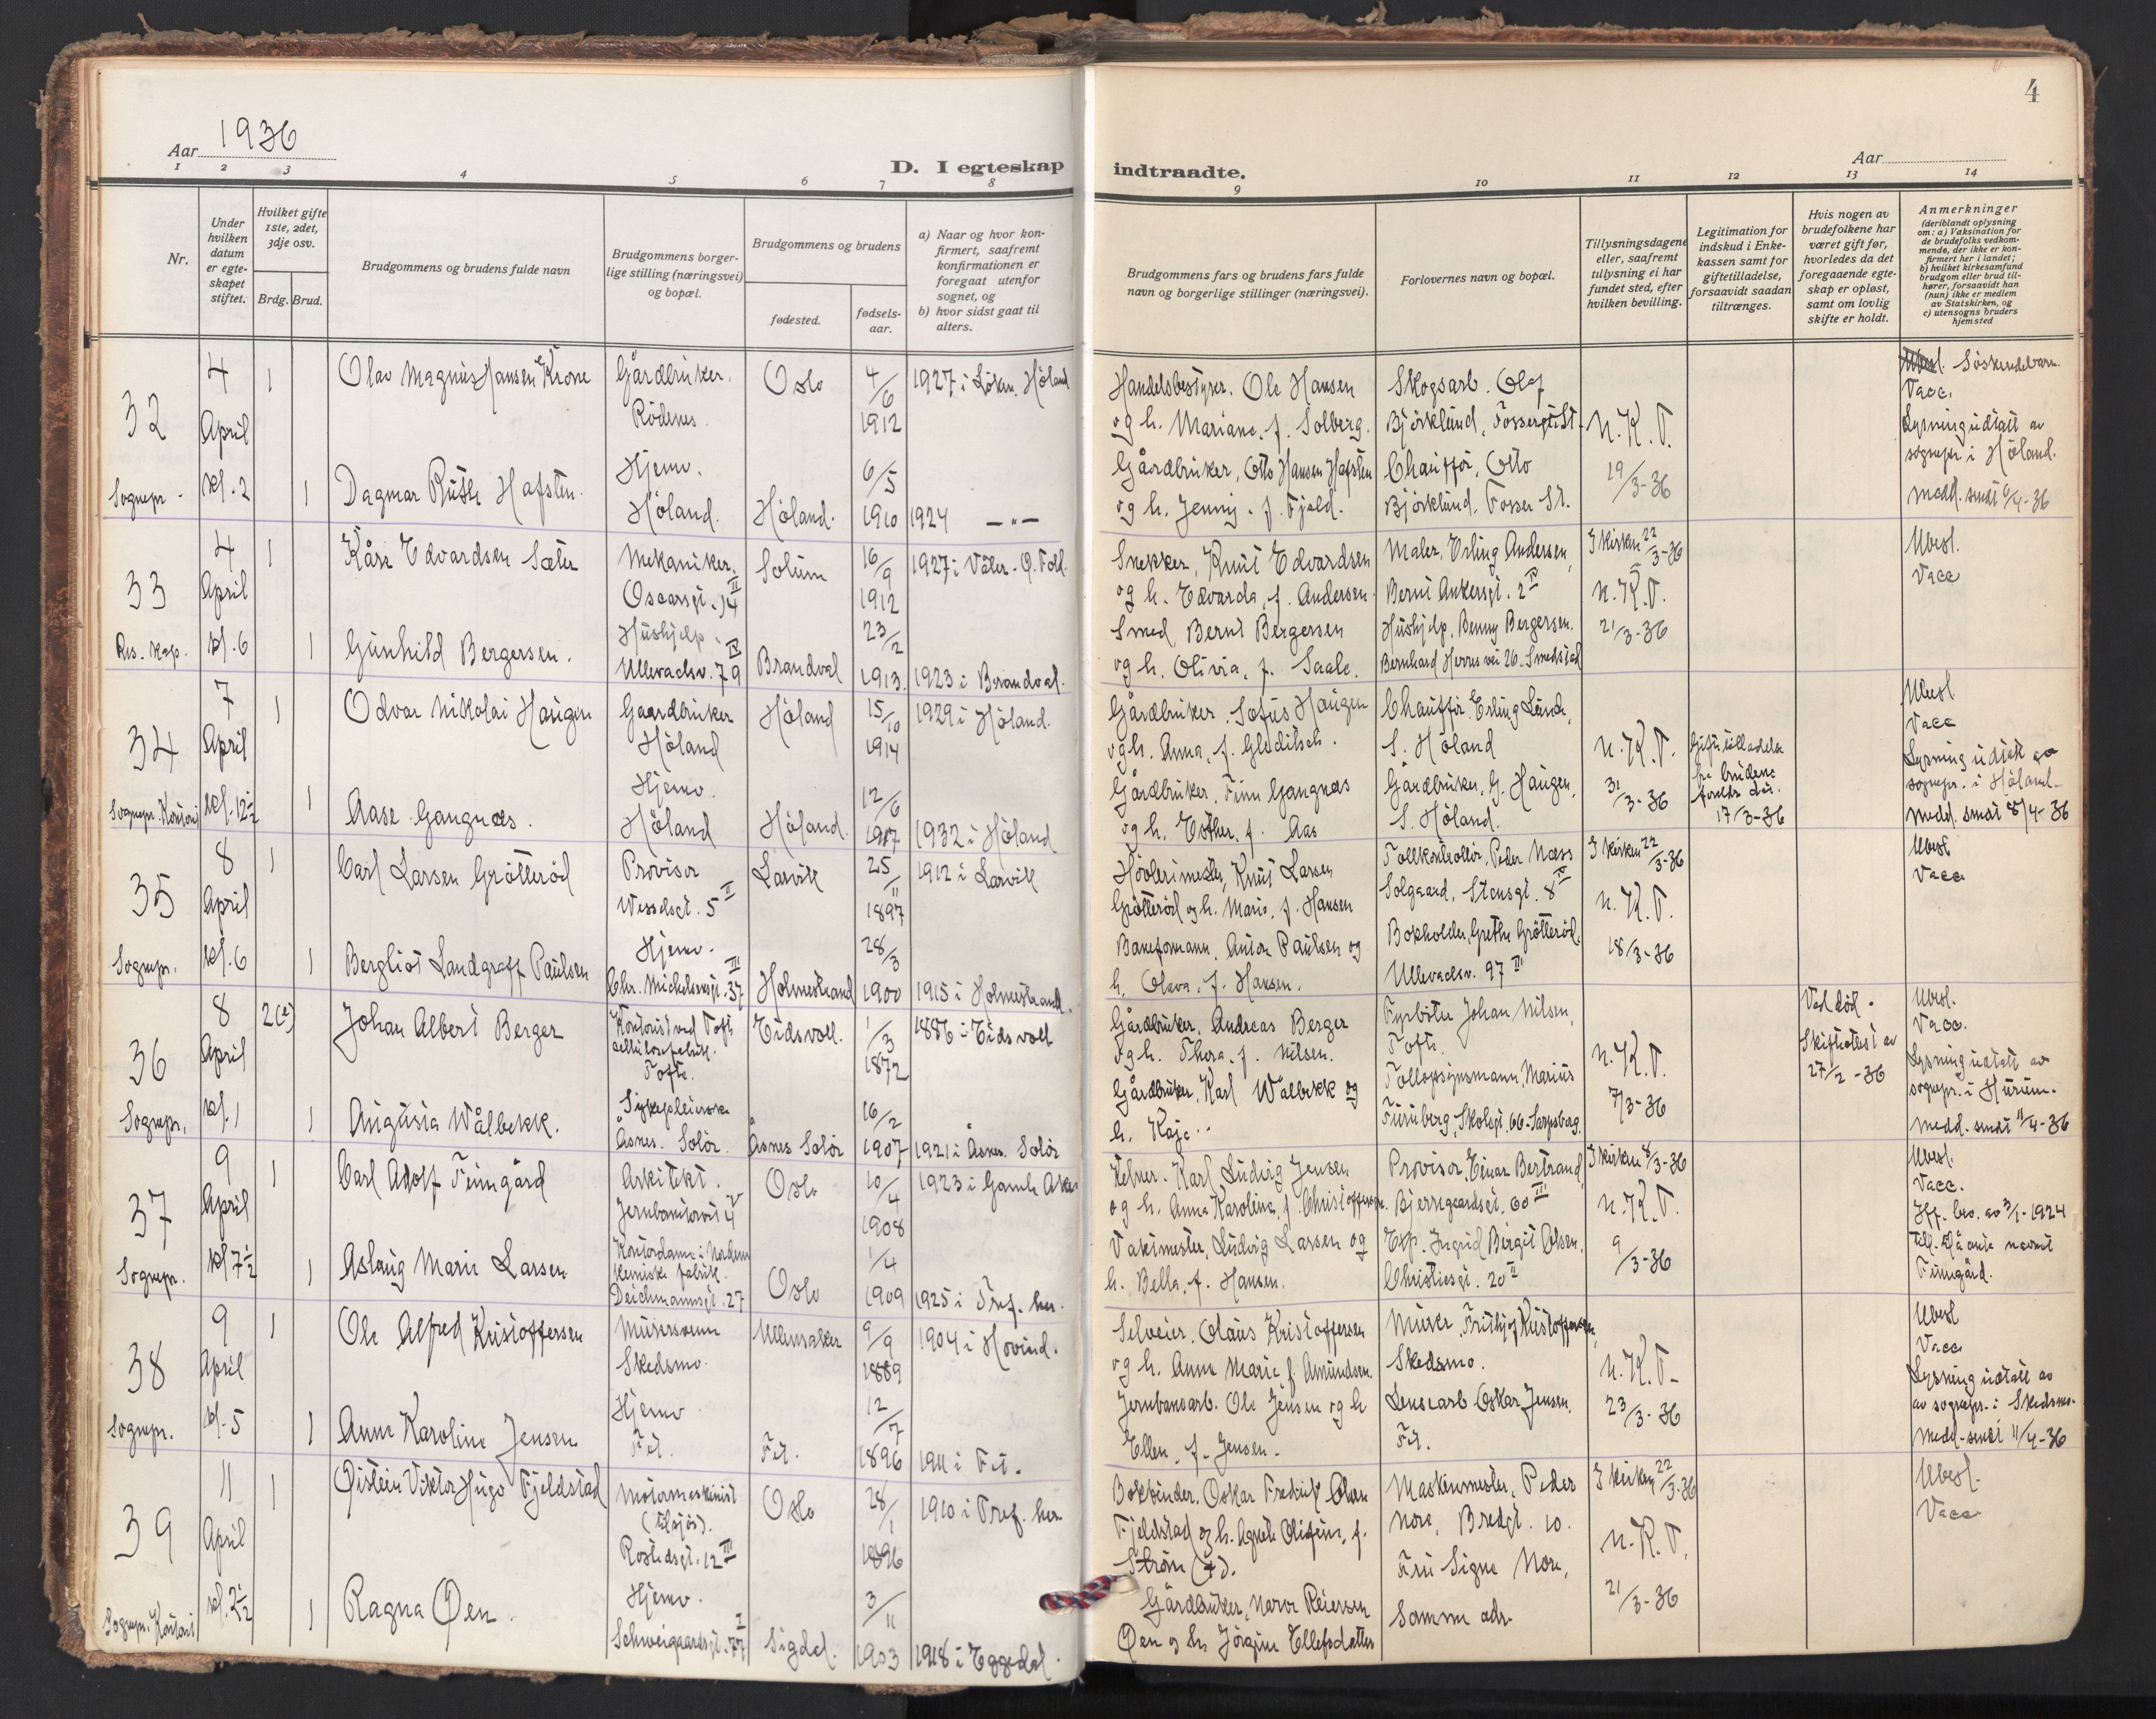 4
Aar 1936
Aar
D. I egteskap indtraadte.
1 2 3 4 5 6 7 8 9 10 11 12 13 14
Nr.
Under hvilken datum er egte-skapet stiftet.
Hvilket gifte 1ste, 2det, 3dje osv.
Brdg. Brud.
Brudgommens og brudens fulde navn
Brudgommens borger-lige stilling (næringsvei) og bopæl.
Brudgommens og brudens
fødested.
fødsels-aar.
a) Naar og hvor kon-firmert, saafremt konfirmationen er foregaat utenfor sognet, og
b) hvor sidst gaat til alters.
Brudgommens fars og brudens fars fulde navn og borgerlige stillinger (næringsvei).
Forlovernes navn og bopæl.
Tillysningsdagene eller, saafremt tillysning ei har fundet sted, efter hvilken bevilling.
Legitimation for indskud i Enke-kassen samt for giftetilladelse, forsaavidt saadan tiltrænges.
Hvis nogen av brudefolkene har været gift før, hvorledes da det foregaaende egte-skap er opløst, samt om lovlig skifte er holdt.
Anmerkninger
(deriblandt oplysning om: a) Vaksination for de brudefolks vedkom-mende, der ikke er kon-firmert her i landet; b) hvilket kirkesamfund brudgom eller brud til-hører, forsaavidt han (hun) ikke er medlem av Statskirken, og c) utensogns bruders hjemsted
32 Sognepr. 4 April kl. 2
1 Olav Magnus Hansen Krone Gårdbruker. Rödenes Oslo 4/6 1912 1927 i Löken. Höland
1 Dagmar Ruth Hafsten. Hjemv. Höland. Höland. 6/5 1910 1924 —"—
Handelsbestyrer. Ole Hansen
og h. Mariane, f. Solberg.
Gårdbruker, Otto Hansen Hafsten
og h. Jenny. f. Fjeld.
Skogsarb. Olaf
Björklund, Fosser St.
Chauffør, Otto
Björklund, Fosser St.
N.K.T. 19/3-36
Söskendebarn.
Vacc.
Lysning utatt av
sognepr. i Höland.
medd. sendt 6/4-36
33 Res. kap. 4 April kl. 6
1 Kåre Edvardsen Sæter Mekaniker. Oscarsgt. 14 II Solum 16/9 1912 1927 i Våler. Ø. Fold.
1 Gunhild Bergersen. Hushjelp. Ullevaalsv. 79 IV Brandval 23/2 1913. 1923 i Brandval.
Snekker, Knut Edvardsen
og h. Edvarda, f. Andersen.
Smed Bernt Bergersen
og h. Olivia, f. Saale.
Maler, Erling Andersen,
Bernt Ankersgt. 2 IV
Hushjelp, Benny Bergersen.
Bernhard Herres vei 26. Smedstad
I kirken 22/3-36
N.K.T.
21/3-36
Ubesl.
Vacc
34 Sognepr. Kontor 7 April kl. 12½
1 Odvar Nikolai Haugen Gaardbruker Höland Höland 15/10 1914 1929 i Höland.
1 Aase Gangnæs. Hjemv. Höland Höland. 12/6 1917 1932 i Höland
Gårdbruker, Sofus Haugen
og h. Anna, f. Gleditsch.
Gårdbruker, Finn Gangnæs
og h. Esther, f. Aas
Chauffør, Erling Lunde,
S. Höland
Gårdbruker, G. Haugen,
S. Höland.
N.K.T.
31/3-36
Giftetilladelse
fra brudens
foreldre
17/3-36
Ubesl
Vacc
Lysning utatt av
sognepr. i Höland.
Medd. sendt 8/4-36
35 Sognepr. 8 April kl. 6
1 Carl Larsen Grötteröd Provisor Wesselsgt. 5 II Larvik 25/11 1897 1912 i Larvik
1 Bergliot Landgraff Paulsen Hjemv. Chr. Michelsensgt. 37 III Holmestrand 28/3 1900 1915 i Holmestrand.
Høvlerimester, Knut Larsen
Grötteröd og h. Marie, f. Hansen
Baneformann, Anton Paulsen og
h. Olava, f. Hansen.
Tollkontrollör, Peder Næss
Solgaard, Stensgt. 8 IV
Bokholder, Grethe Grötteröd.
Ullevaalsv. 97 III
I kirken 22/3-36
N.K.T.
18/3-36
Ubesl
Vacc
36 Sognepr. 8 April kl. 1
2(e) Johan Albert Berger Kontorist ved Tofte cellulosefabrik. Tofte. Eidsvoll. 1/3 1872 1886 i Eidsvoll
1 Augusta Wålbekk. Sykepleierske Åsnes. Solör. Åsnes Solör 16/2 1907 1921 i Åsnes. Solör
Gårdbruker, Andreas Berger
og h. Thera. f. Nilsen.
Gårdbruker, Karl Wålbekk og
h. Kaja..
Fyrbøter Johan Nilsen,
Tofte.
Tollopsynsmann, Marius
Furuberg, Skolegt. 66. Sarpsborg.
N.K.T.
7/3-36
Ved död.
Skifteattest av
27/2-36
Ubesl.
Vacc.
Lysning utatt av
sognepr. i Hurum.
Medd. sendt 11/4-36
37 Sognepr. 9 April kl 7½
1 Carl Adolf Finngård Arkitekt. Jernbanetorvet 4 V Oslo 10/4 1908 1923 i Gamle Aker
1 Aslaug Marie Larsen Kontordame i Norden kemiske fabrik. Deichmannsgt. 27 Oslo 1/4 1909 1925 i Tref. her.
Kelner. Karl Ludvig Jensen
og h. Anna Karoline, f. Christoffersen.
Vaktmester, Ludvig Larsen og
h. Bella, f. Hansen.
Provisor, Einar Bertrand,
Bjerregaardsgt. 60 III
Exp. Ingrid Birgit Olsen,
Christiesgt. 20 II
I kirken 8/3-36
N.K.T.
9/3-36
Ubesl.
Vacc.
Iff. bev. av 3/1-1924
till. å anta navnet
Finngård.
38 Sognepr. 9 April kl. 5
1 Ole Alfred Kristoffersen Murersvenn Skedsmo. Ullensaker 9/9 1889 1904 i Hovind.
1 Anne Karoline Jensen Hjemv. Fet. Fet. 12/7 1896 1911 i Fet.
Selveier, Olaus Kristoffersen
og h. Anne Marie f. Amundsen.
Jernbanearb. Ole Jensen og h
Ellen, f. Jensen.
Murer, Frithjof Kristoffersen,
Skedsmo.
Lensearb Oskar Jensen,
Fet.
N.K.T.
23/3-36
Ubesl
Vacc
Lysning utatt av
av sognepr. i Skedsmo.
Medd. sendt 11/4-36
39 Sognepr. Kontor 11 April kl. 2½
1 Øistein Viktor Hugo Fjeldstad Motormaskinist (tilsjös). Rostedsgt. 12 III Oslo 28/1 1896 1910 i Tref. her
1 Ragna Øen. Hjemv. Schweigaardsgt. 77 I Sigdal. 3/11 1903 1918 i Eggedal.
Bokbinder. Oskar Fredrik Olsen
Fjeldstad og h. Agnete Olefine, f.
Ström (†).
Gårdbruker, Narve Reiersen
Øen og h. Jörgine Ellefsdatter
Maskinmester, Peder
Nore, Bredgt. 10.
Fru Signe Nore,
Samme adr.
I kirken 22/3-36
N.K.T.
21/3-36
Ubesl.
Vacc